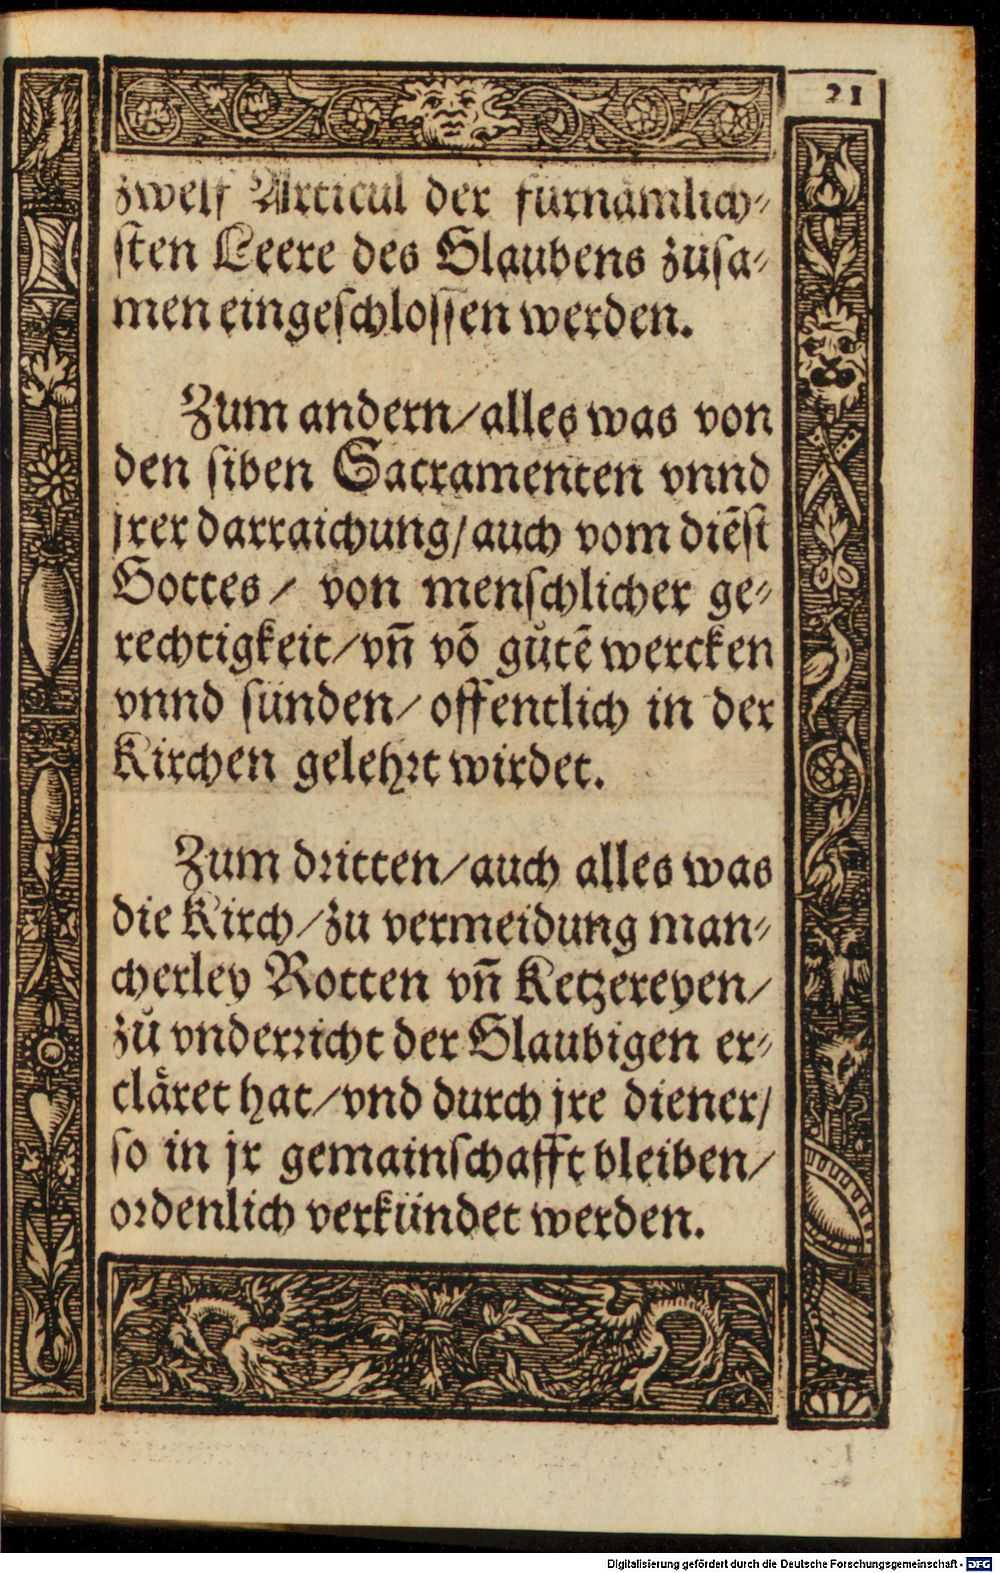 21
zwelf Articul der fürnämlich⸗
sten Leere des Glaubens zůsa⸗
men eingeschlossen werden.
Zum andern/alles was von
den siben Sacramenten vnnd
jrer darraichung/auch vom diēst
Gottes/ von menschlicher ge⸗
rechtigkeit/vn̄ vō gůtē wercken
vnnd sünden/ offentlich in der
Kirchen gelehrt wirdet.
Zum dritten/auch alles was
die Kirch/zu vermeidung man⸗
cherley Rotten vn̄ Ketzereyen/
zů vnderricht der Glaubigen er⸗
cläret hat/vnd durch jre diener/
so in jr gemainschafft bleiben/
ordenlich verkündet werden.
Digitalisierung gefördert durch die Deutsche Forschungsgemeinschaft - DFG